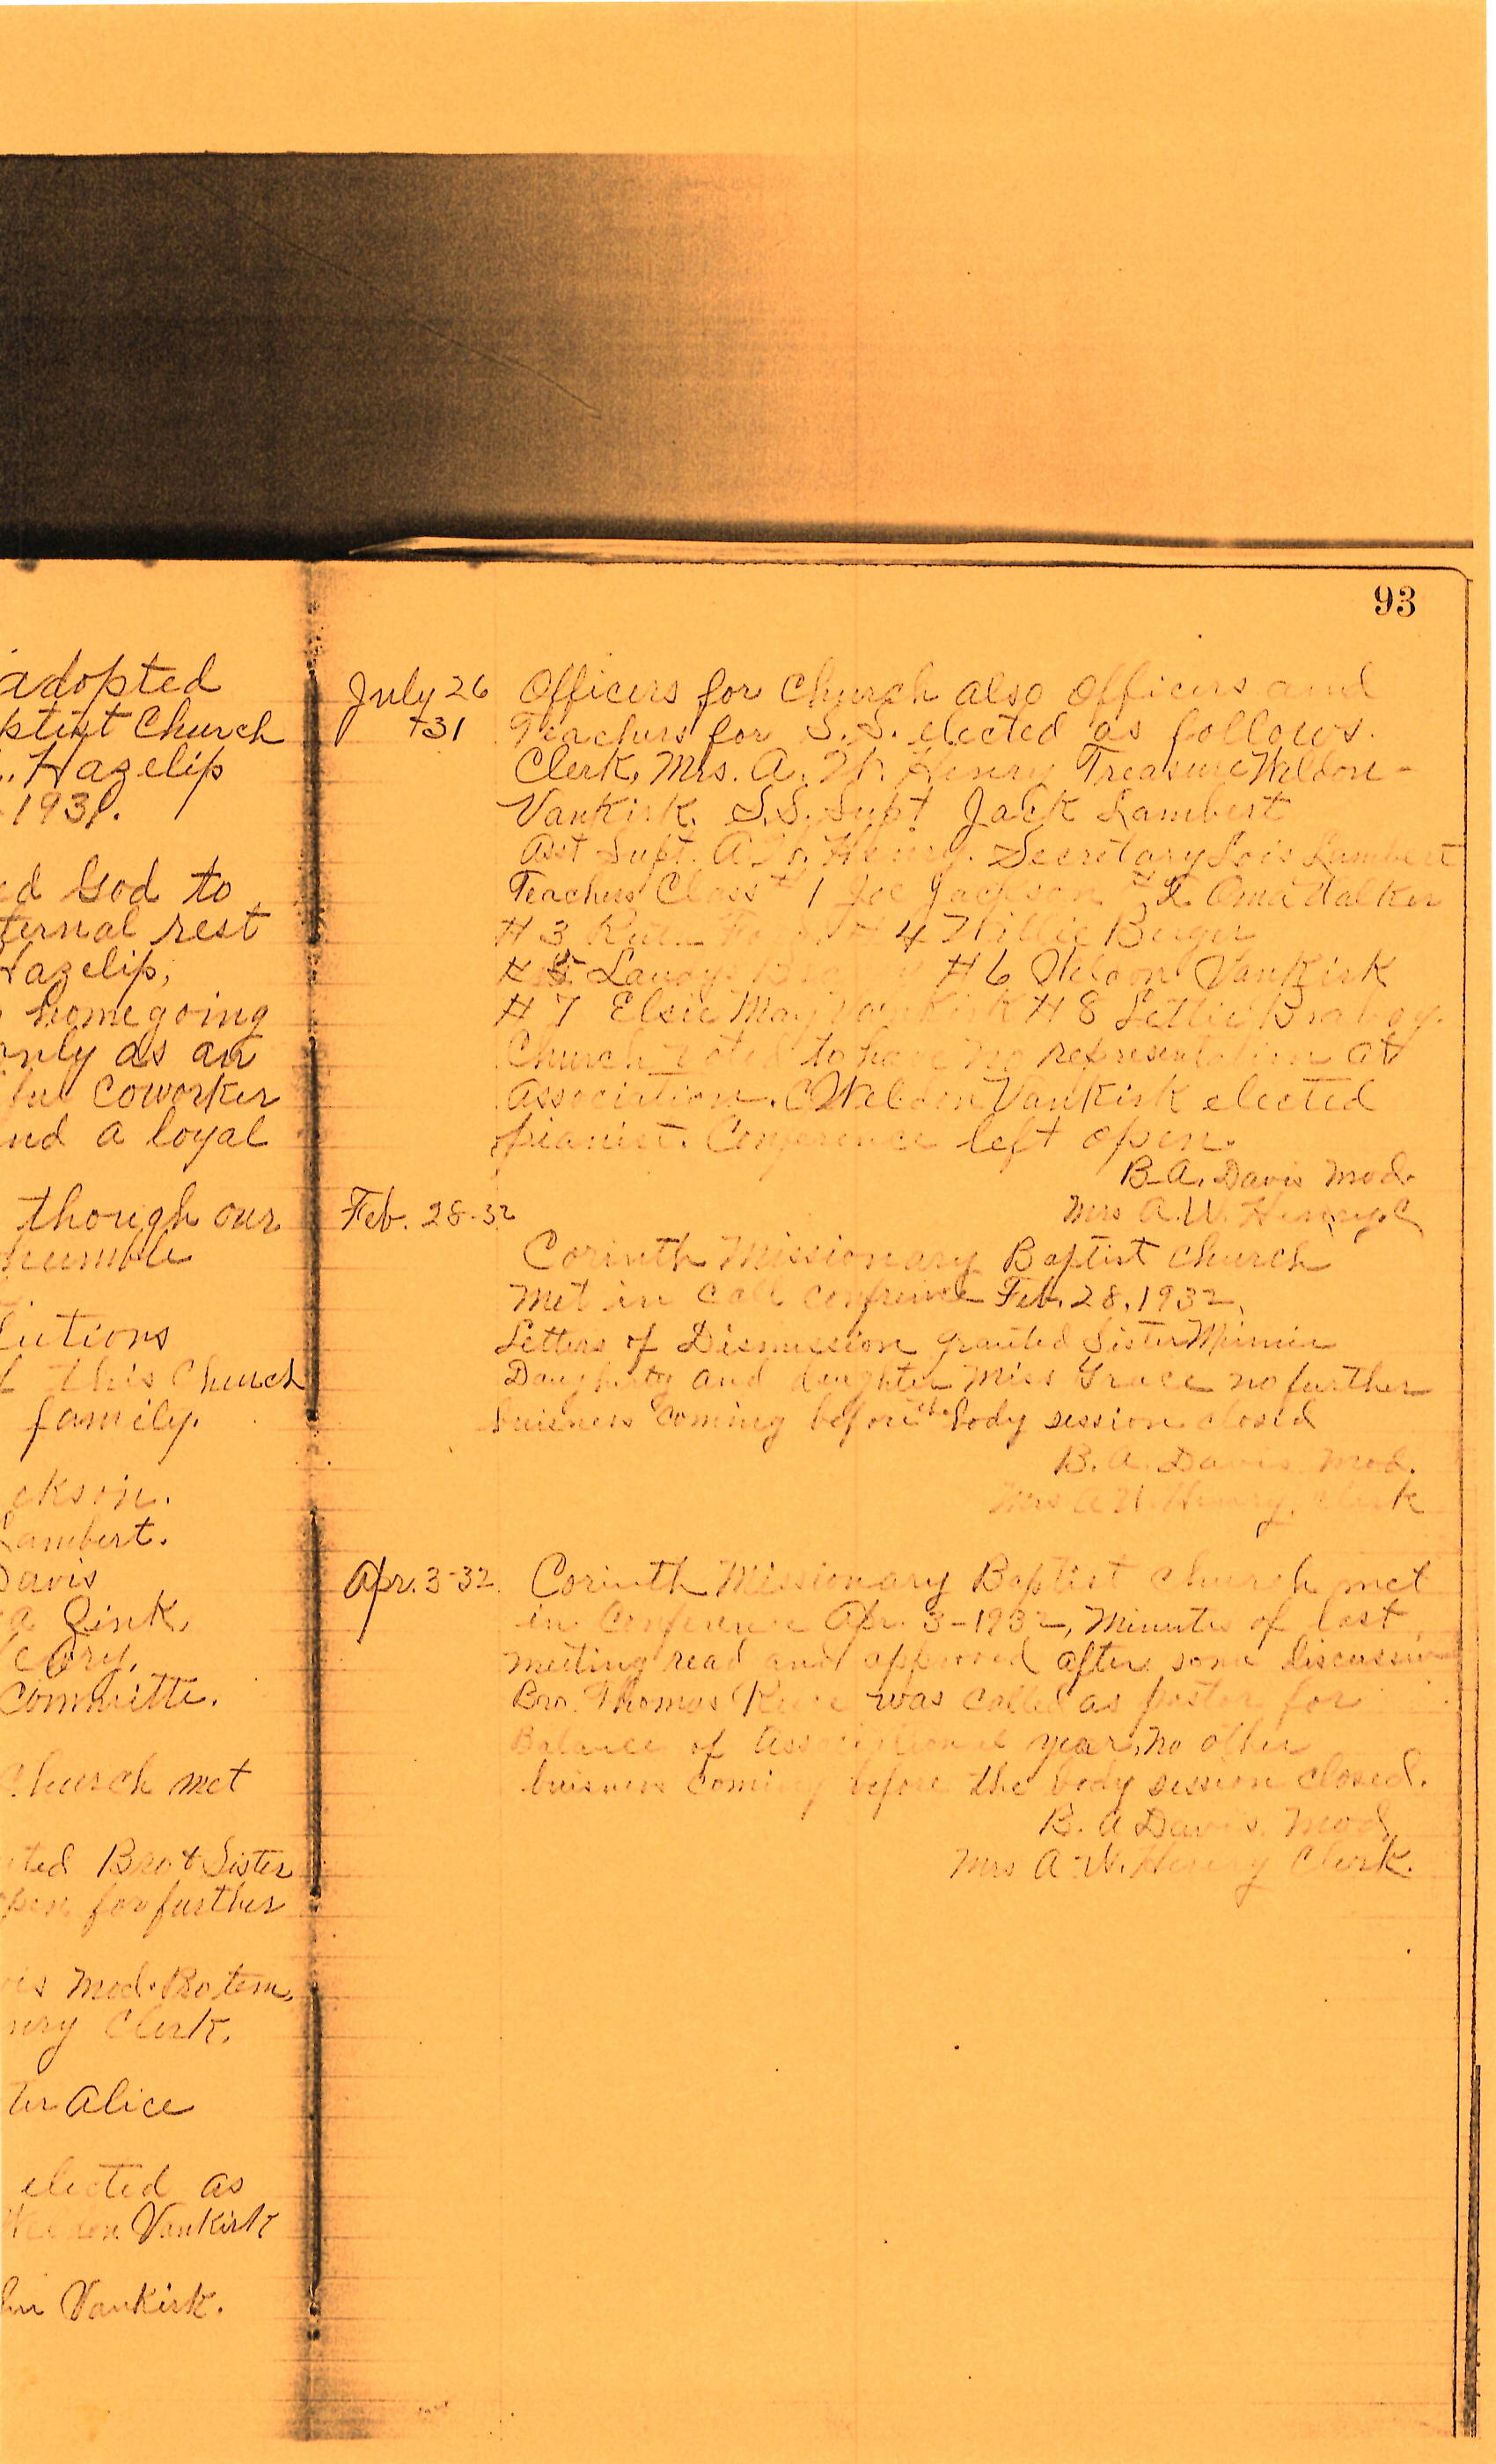 adopted
ptist Church
. Hazelip
1931.
ed God to
ternal rest
Hazelip,
homegoing
only as an
ful coworker
nd a loyal
though our
humble
lutions
f this Church
family.
ckson.
Lambert.
Davis
a Qink,
Committe.
Church met
ted Bro + Sister
pen for further
is Mod. Protem,
nry Clerk.
ter Alice
elected as
Weldon Vankirk
Vankirk.
93
July 26 Officers for Church also officers and
+31 Teachers for S.S. elected as follows.
Clerk, Mrs. A. W. Henry Treasure Weldon-
Vankirk. S.S. Supt Jack Lambert
Asst Supt. A. W. Henry. Secretary Lois Lambert
Teachers Class #1 Joe Jackson # 2. Oma Walker
# 3 #4 Willie Berger
# 5 #6 Weldon Vankirk
#7 Elsie May Vankirk #8 Lettie
Church voted to have no representation at
association. Weldon Vankirk elected
pianist. Conference left open.
B.A. Davis Mod.
Mrs A.W. Henry, C
Feb. 28-32
Corinth Missionary Baptist Church
Met in Call confrince Feb. 28, 1932,
Letters of Dismission granted Sister Minnie
Daugherty and daughter Miss Grace no further
buisness coming before the body session closed
B. A. Davis Mod.
Mrs A W. Henry, Clerk
Apr. 3-32. Corinth Missionary Baptist Church met
in Conference Apr. 3-1932, Minutes of last
meeting read and approved after some discussion
Bro. Thomas was called as pastor for
Balance of Associational year, no other
buisness coming before the body session closed.
B. A Davis. Mod
Mrs A. W. Henry Clerk.